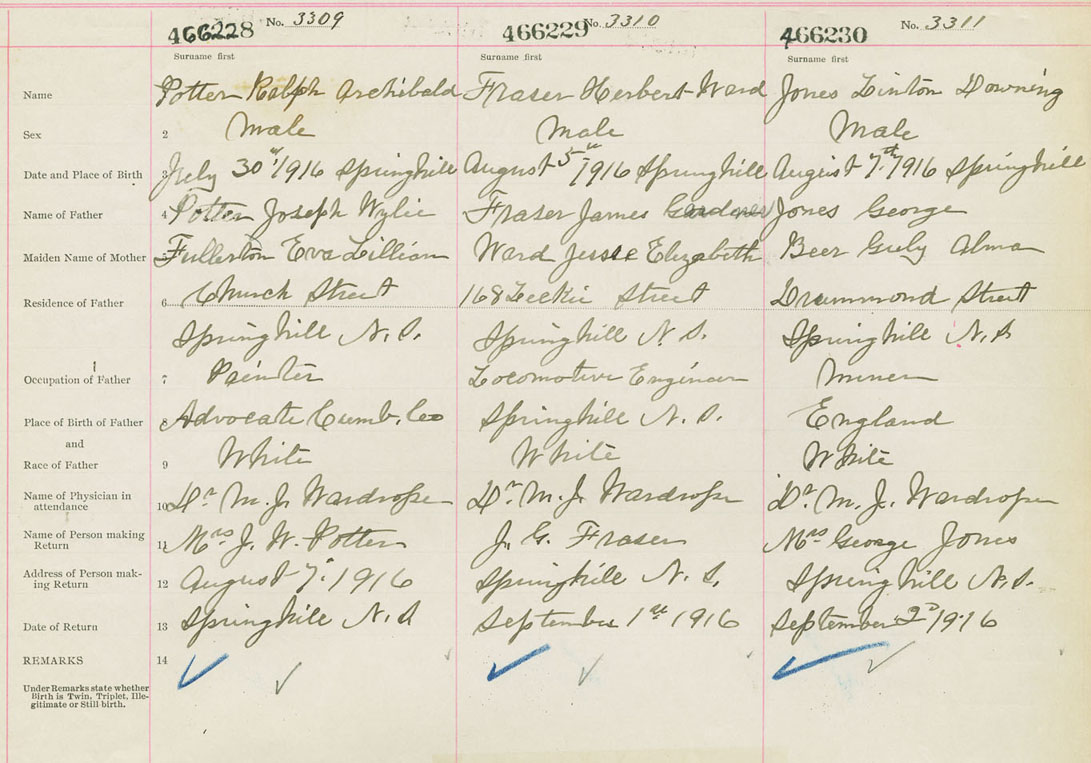 466228 No. 3309 466229 No. 3310 466230 No. 3311
Surname first Surname first Surname first
Name Potter Ralph Archibald Fraser Herbert Ward Jones Linton Downing
Sex 2 Male Male Male
Date and Place of Birth 3 July 30th/1916 Springhill August 5th/1916 Springhill August 7th/1916 Springhill
Name of Father 4 Potter Joseph Wylie Fraser James Gardner Jones George
Maiden Name of Mother 5 Fullerton Eva Lillian Ward Jessie Elizabeth Beer Alma
Residence of Father 6 Church Street 168 Leckie Street Drummond Street
Springhill N.S. Springhill N.S. Springhill N.S
Occupation of Father 7 Painter Locomotive Engineer Miner
Place of Birth of Father 8 Advocate Cumb. Co Springhill N.S. England
and
Race of Father 9 White White White
Name of Physician in
attendance 10 Dr M. J. Wardrope Dr M. J. Wardrope Dr M. J. Wardrope
Name of Person making
Return 11 Mrs J. W. Potter J. G. Fraser Mrs George Jones
Address of Person mak-
ing Return 12 August 7. 1916 Springhill N.S. Springhill N.S.
Date of Return 13 Springhill N.S September 1st 1916 September 2d/1916
REMARKS 14
Under Remarks state whether
Birth is Twin, Triplet, Ille-
gitimate or Still birth.